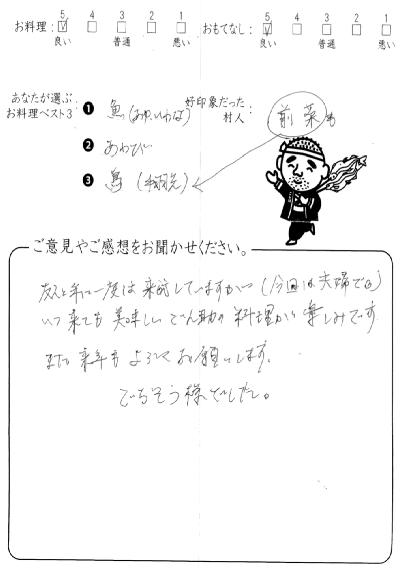 お料理: 5 良い 4 3 普通 2 1 悪い おもてなし: 5 良い 4 3 普通 2 1 悪い
あなたが選ぶ お料理ベスト3: ❶ 魚 好印象だった 村人: 前菜も
❷ あわび
❸ 鳥
ご意見やご感想をお聞かせください。
友人と年に一度は来訪していますが(今回は夫婦での)
いつ来ても美味しいごん助の料理が楽しみです
また来年もよろしくお願いします。
ごちそう様でした。